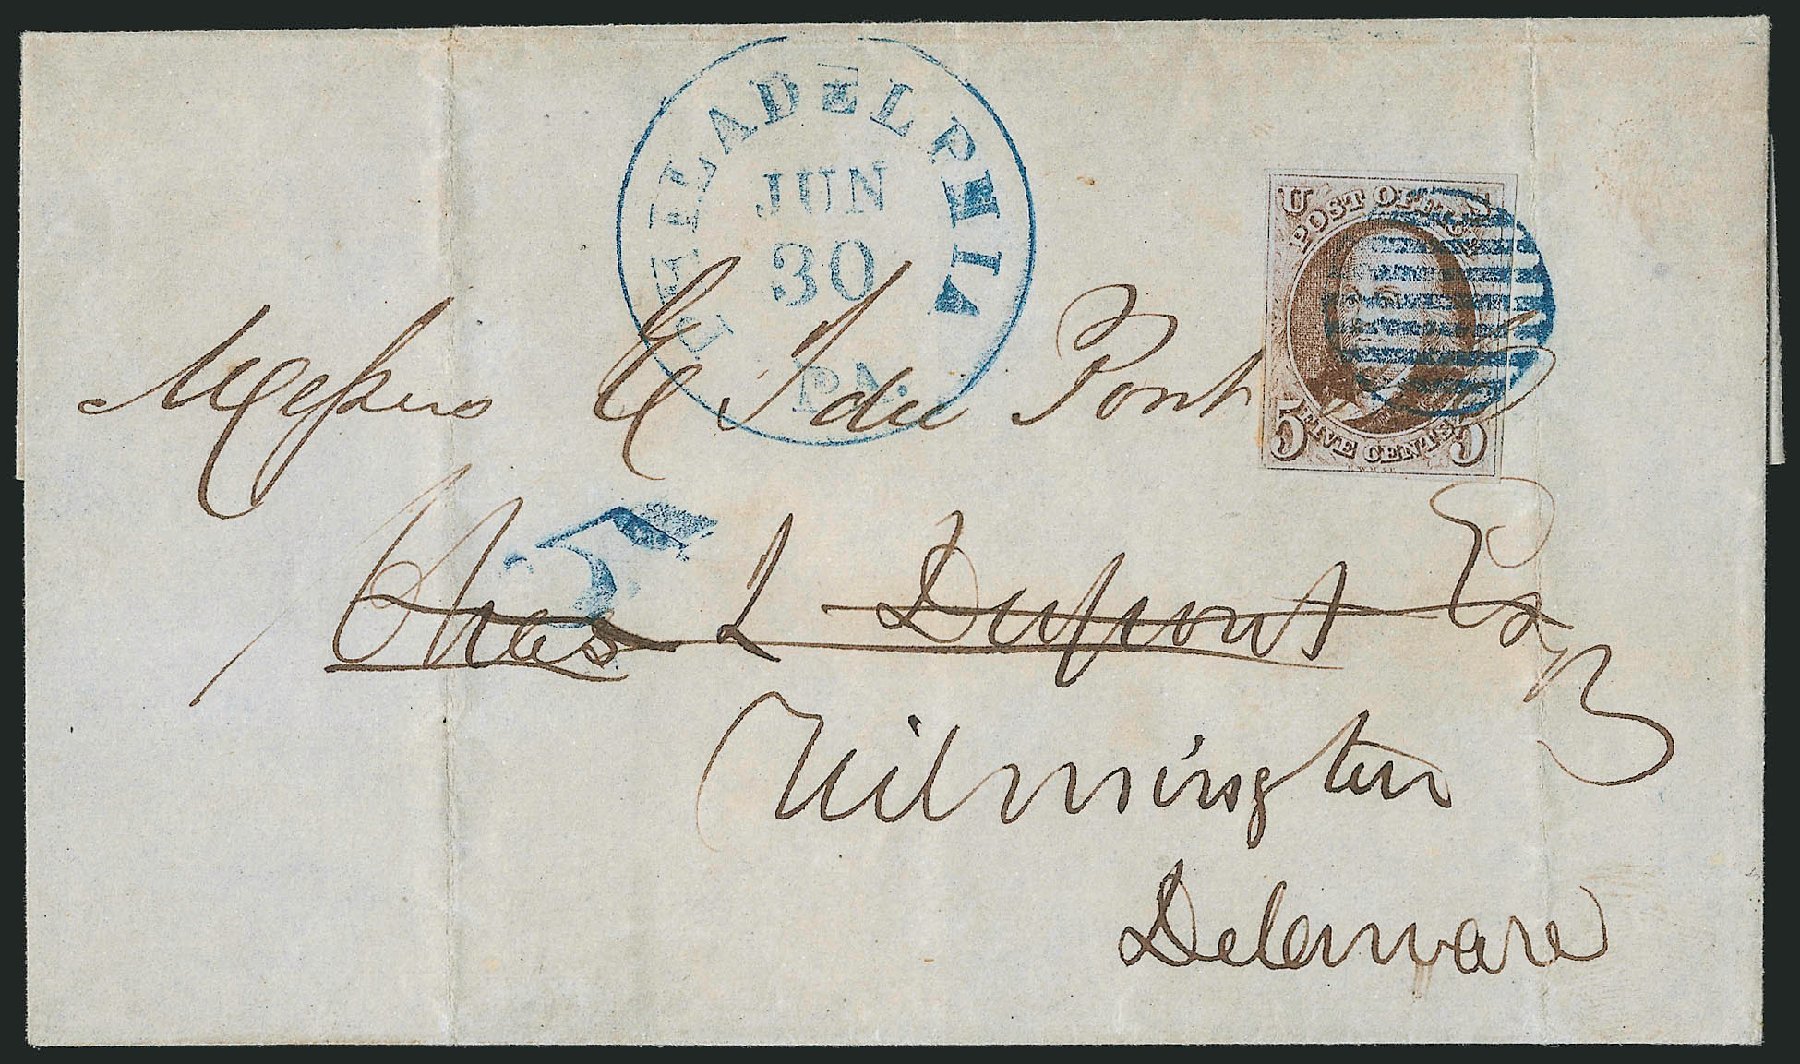 PHILADELPHIA
JUN
30
PA.
U S
POST OFFICE
5 FIVE CENTS 5
Messrs E I du Pont
5
Chas I Dupont Esq
Wilmington
Delaware